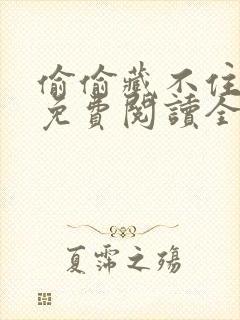 偷偷藏不住
免費閱讀全
夏霈之殤